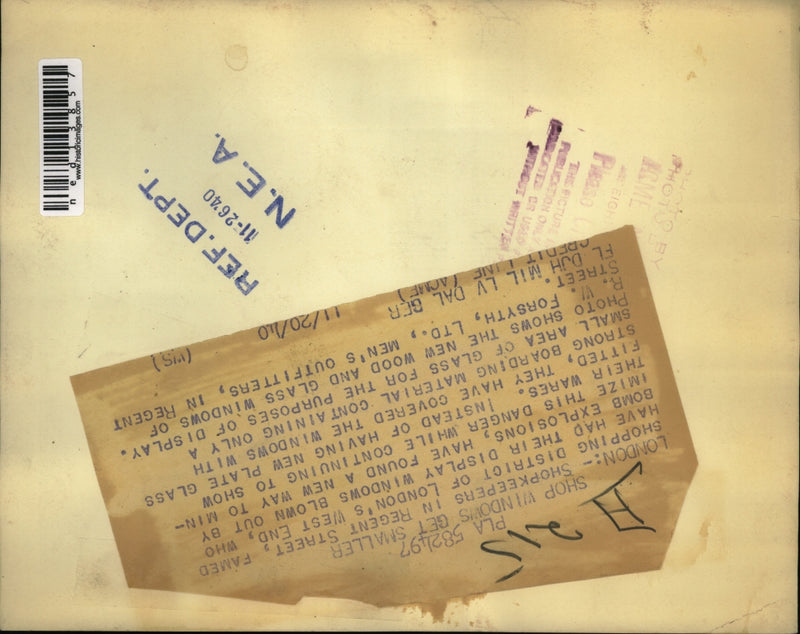 www.historicimages.com
ned13857
REF. DEPT.
11-26-40
N.E.A.
PHOTO BY
ACME
THIS PICTURE
PUBLICATION ONLY
WITHOUT WRITTEN
A 215
PLA 582497
SHOP WINDOWS GET SMALLER
LONDON:- SHOPKEEPERS IN REGENT STREET, FAMED
SHOPPING DISTRICT OF LONDON'S WEST END, WHO
HAVE HAD THEIR DISPLAY WINDOWS BLOWN OUT BY
BOMB EXPLOSIONS, HAVE FOUND A NEW WAY TO MIN-
IMIZE THIS DANGER WHILE CONTINUING TO SHOW
THEIR WARES. INSTEAD OF HAVING NEW PLATE GLASS
FITTED, THEY HAVE COVERED THE WINDOWS WITH
STRONG BOARDING MATERIAL CONTAINING ONLY A
SMALL AREA OF GLASS FOR THE PURPOSES OF DISPLAY.
PHOTO SHOWS THE NEW WOOD AND GLASS WINDOWS OF
R. W. FORSYTH, LTD., MEN'S OUTFITTERS, IN REGENT
STREET.
FL DJH MIL LV DAL BER
CREDIT LINE (ACME) 11/20/40 (WS)